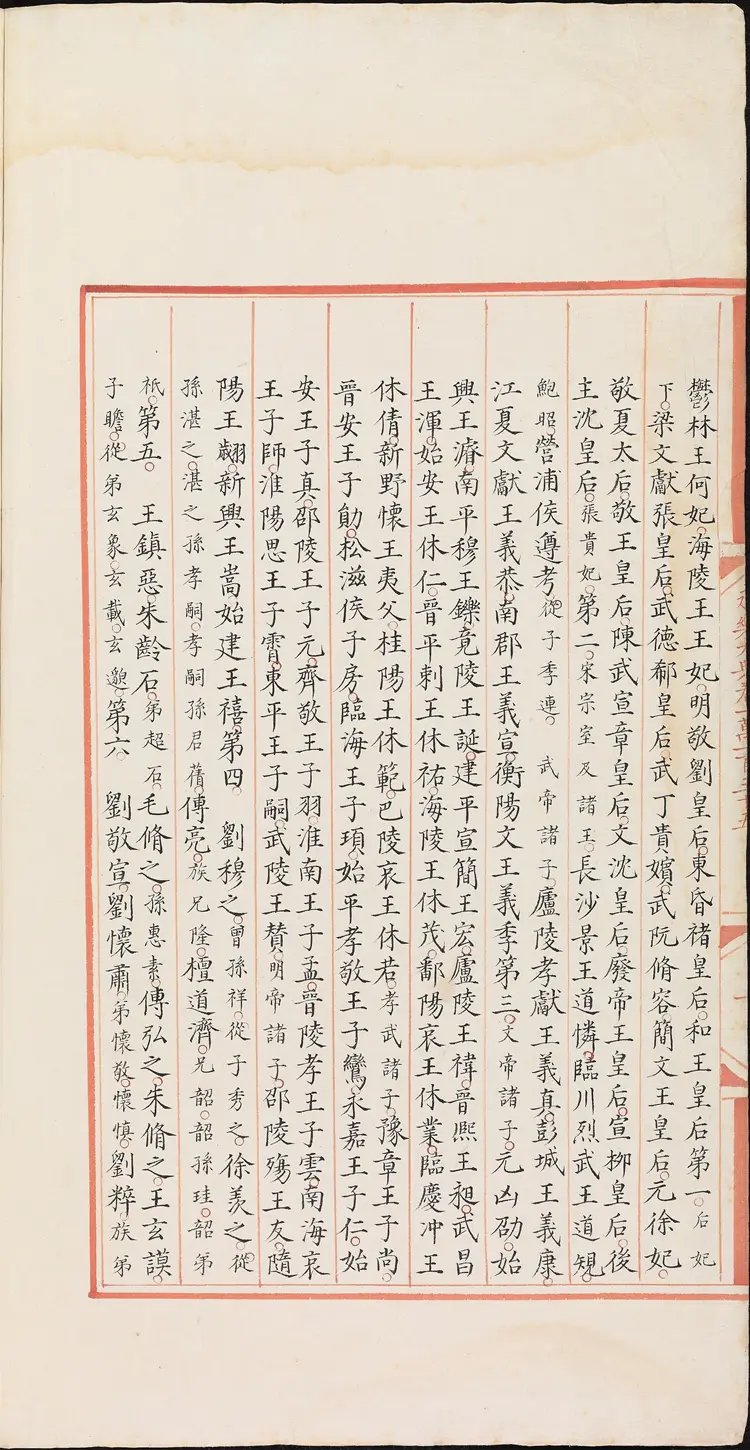 鬱林王何妃。海陵王王妃。明敬劉皇后。東昏褚皇后。和王皇后第一。后妃
下。梁文獻張皇后。武德郗皇后。武丁貴嬪。武阮脩容。簡文王皇后。元徐妃。
敬夏太后。敬王皇后。陳武宣章皇后。文沈皇后。廢帝王皇后。宣栁皇后。後
主沈皇后。張貴妃。第二。宋宗室及諸王。長沙景王道憐。臨川烈武王道規。
鮑昭。營浦侯遵考。從子季連。 武帝諸子。廬陵孝獻王義真。彭城王義康。
江夏文獻王義恭。南郡王義宣。衡陽文王義季。第三。文帝諸子。元凶劭。始
興王濬。南平穆王鑠。竟陵王誕。建平宣簡王宏。廬陵王禕。晉熙王昶。武昌
王渾。始安王休仁。晉平剌王休祐。海陵王休茂。鄱陽哀王休業。臨慶沖王
休倩。新野懷王夷父。桂陽王休範。巴陵哀王休若。孝武諸子。豫章王子尚。
晉安王子勛。松滋侯子房。臨海王子頊。始平孝敬王子鸞。永嘉王子仁。始
安王子真。邵陵王子元。齊敬王子羽。淮南王子孟。晉陵孝王子雲。南海哀
王子師。淮陽思王子霄。東平王子嗣。武陵王贊。明帝諸子。邵陵殤王友。隨
陽王翽。新興王嵩。始建王禧。第四。 劉穆之。曾孫祥。從子秀之。徐羨之。從
孫湛之。湛之孫孝嗣。孝嗣孫君蒨。傅亮。族兄隆。檀道濟。兄韶。韶孫珪。韶弟
祇。第五。 王鎮惡。朱齡石。弟超石。毛脩之。孫惠素。傅弘之。朱脩之。王玄謨。
子瞻。從弟玄象。玄載。玄邈。第六。 劉敬宣。劉懷肅。弟懷敬。懷慎。劉粹。族弟